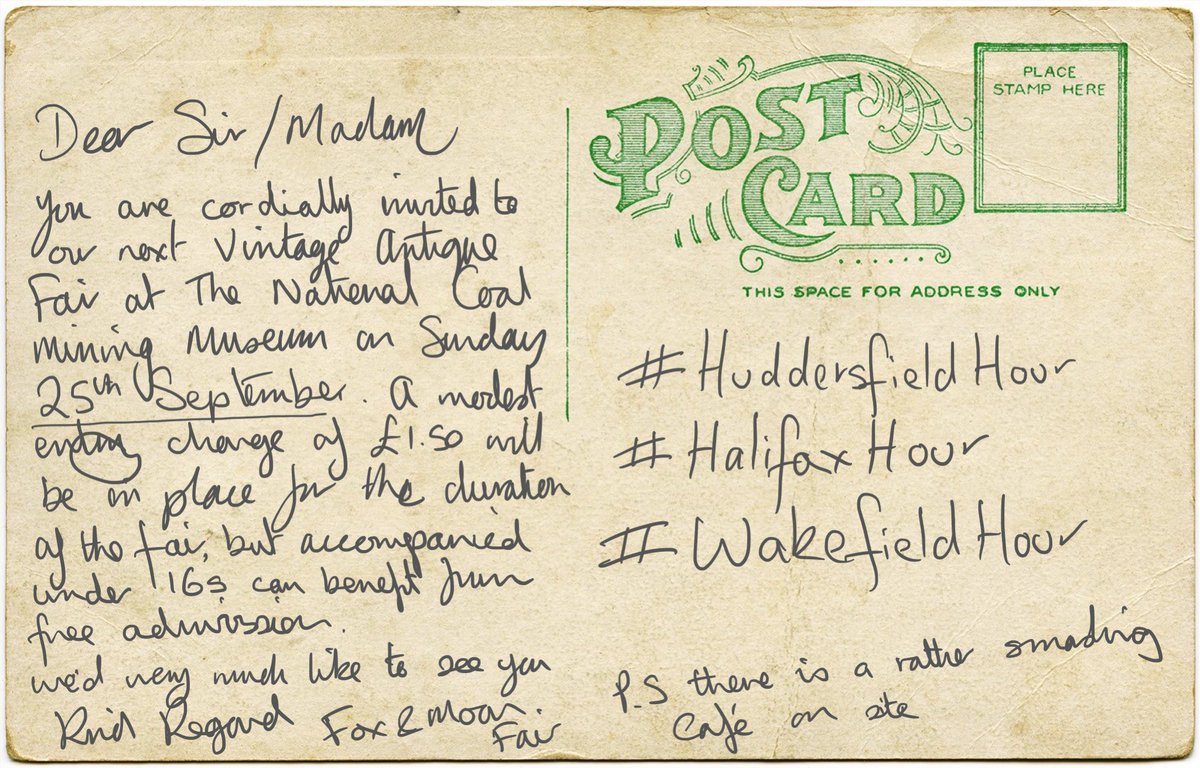 Dear Sir/Madam
you are cordially invited to
our next Vintage Antique
Fair at The National Coal
mining Museum on Sunday
25th September. A modest
entry charge of £1.50 will
be in place for the duration
of the fair, but accompanied
under 16s can benefit from
free admission.
we'd very much like to see you
Kind Regard Fox & Moon.
Fair
POST
CARD
PLACE
STAMP HERE
THIS SPACE FOR ADDRESS ONLY
#HuddersfieldHour
#HalifaxHour
#WakefieldHour
P.S there is a rather smashing
Café on site